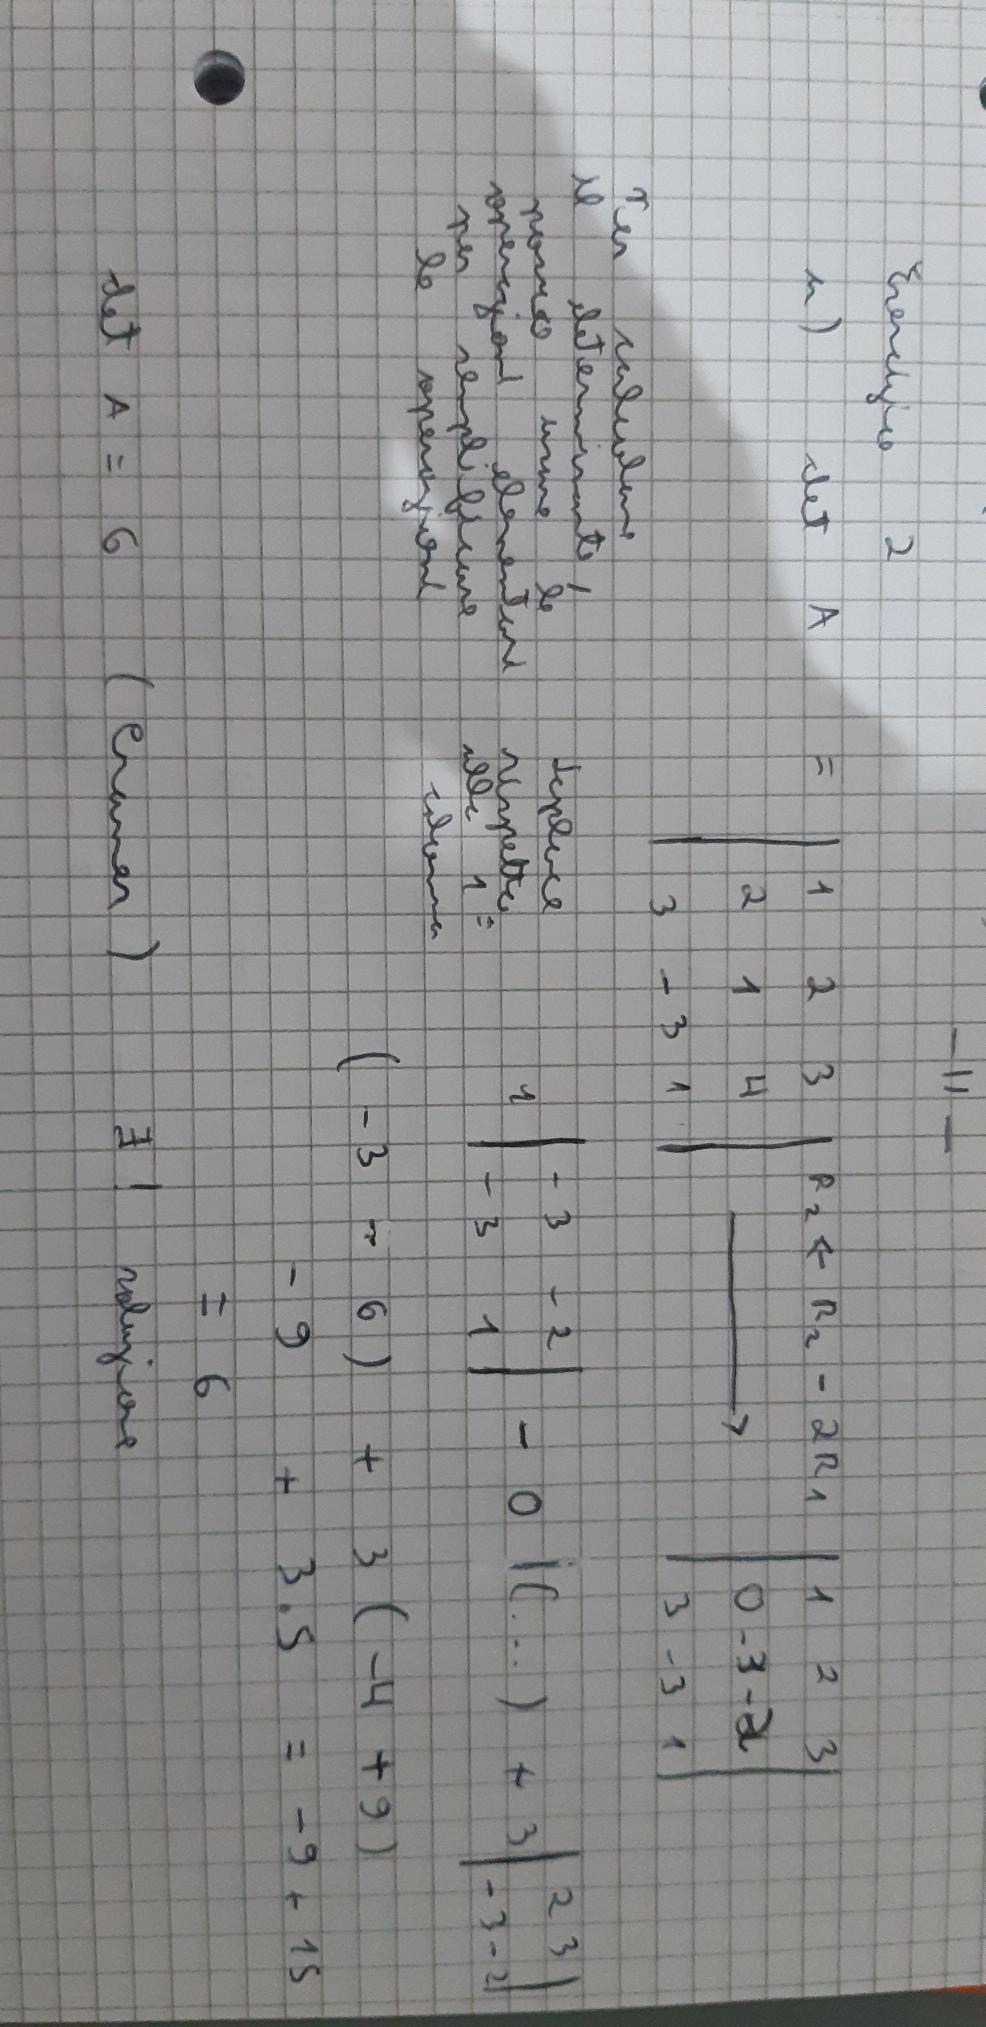 - 11 -
Esercizio 2
a) det A = | 1 2 3 | R2 ← R2 - 2R1 | 1 2 3 |
| 2 1 4 | → | 0 -3 -2 |
| 3 -3 1 | | 3 -3 1 |
Per calcolare
il determinante,
posso usare le
operazioni elementari
per semplificare
le operazioni
Laplace
rispetto
alla 1ª
colonna
1 | -3 -2 | - 0 |(...) + 3 | 2 3 |
| -3 1 | | -3 -2 |
( -3 - 6 ) + 3 ( -4 + 9 )
- 9 + 3.5 = -9 + 15
= 6
det A = 6 (Cramer) ∃! soluzione